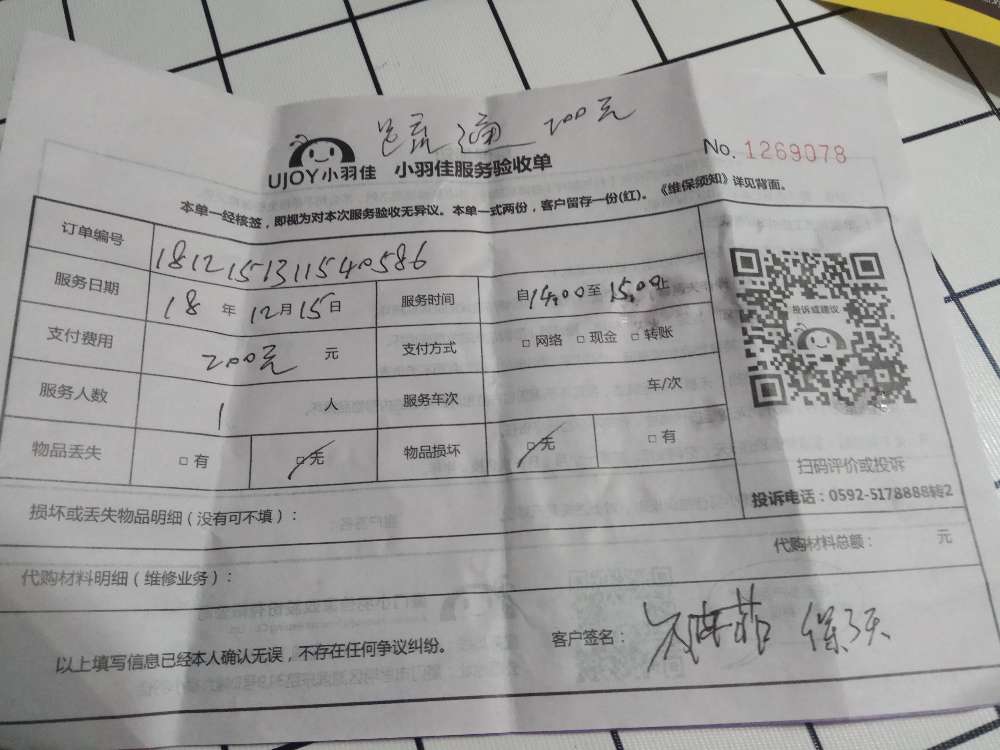 包疏通 200元
UJOY小羽佳 小羽佳服务验收单
No. 1269078
本单一经核签，即视为对本次服务验收无异议。本单一式两份，客户留存一份(红)。《维保须知》详见背面。
订单编号 181215131154058​6
服务日期 18 年 12月15日 服务时间 自14:00至15:00止
支付费用 200元 元 支付方式 □ 网络 □ 现金 □ 转账
服务人数 1 人 服务车次 车/次
物品丢失 □ 有 □ 无 物品损坏 □ 无 □ 有
投诉或建议
扫码评价或投诉
投诉电话：0592-5178888转2
损坏或丢失物品明细（没有可不填）：
代购材料明细（维修业务）： 代购材料总额： 元
以上填写信息已经本人确认无误，不存在任何争议纠纷。
客户签名：